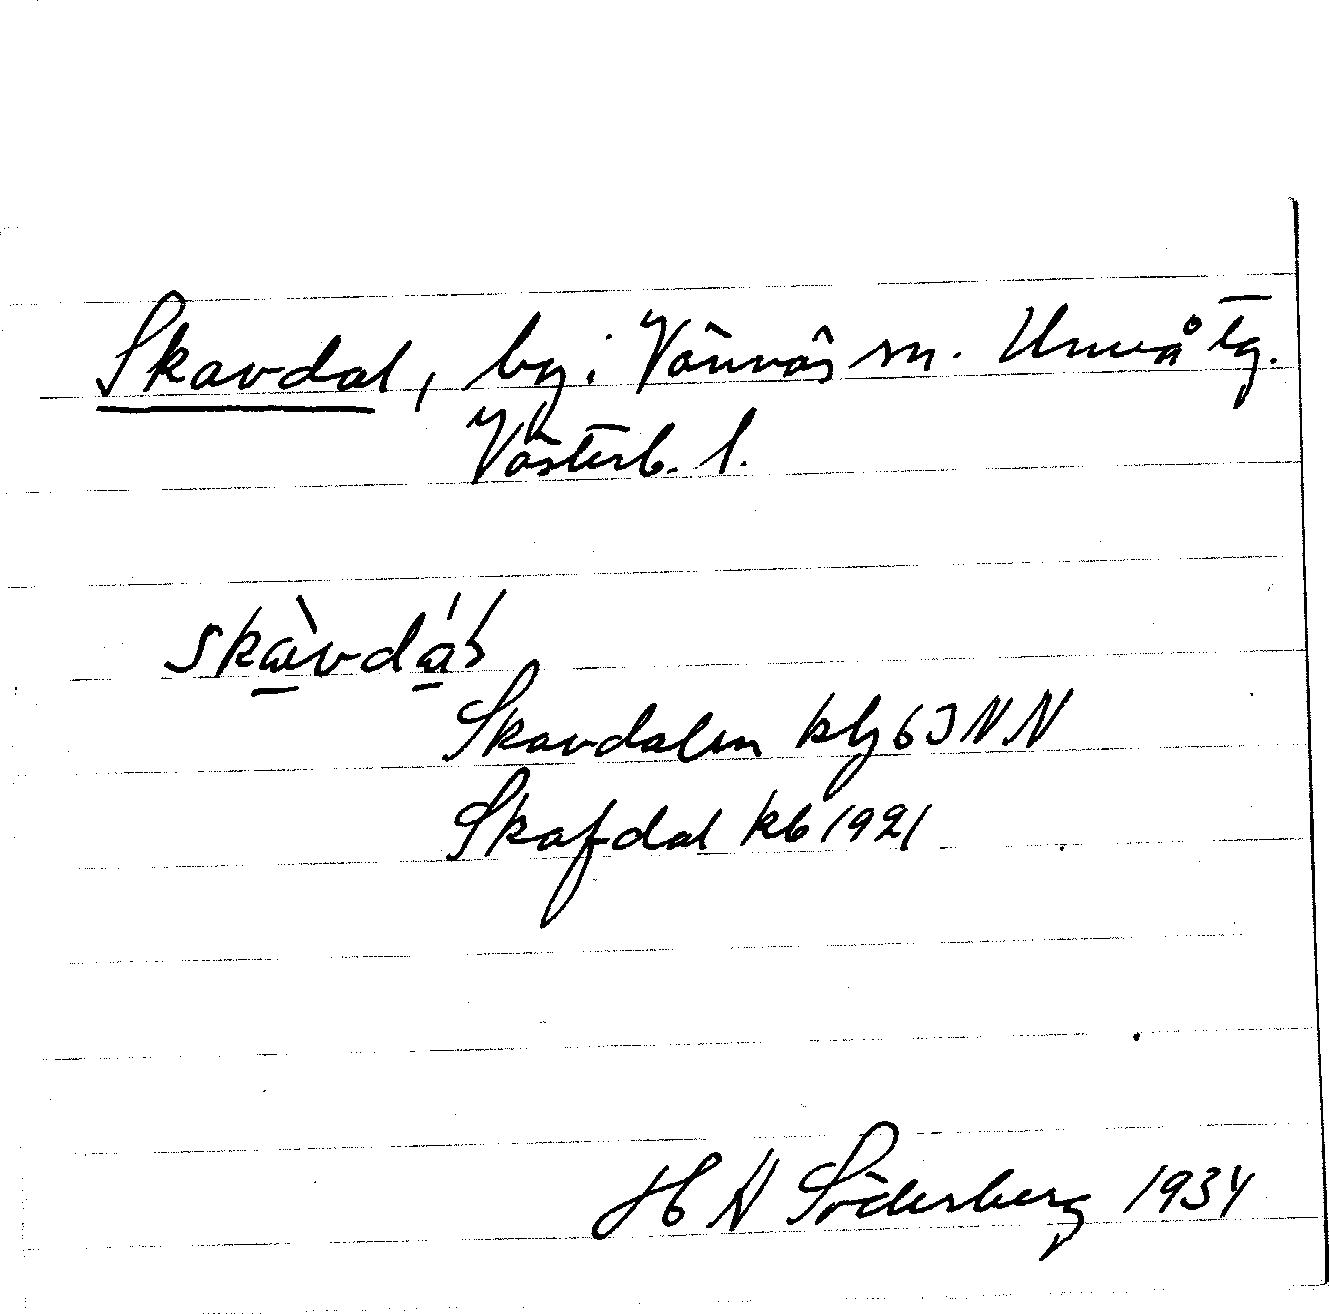 Skavdal, by i Vännäs sn. Umeå tg.
Västerb. l.
skàvdál
Skavdalen klj 63 NN
Skafdal kb 1921
H N Söderberg 1934